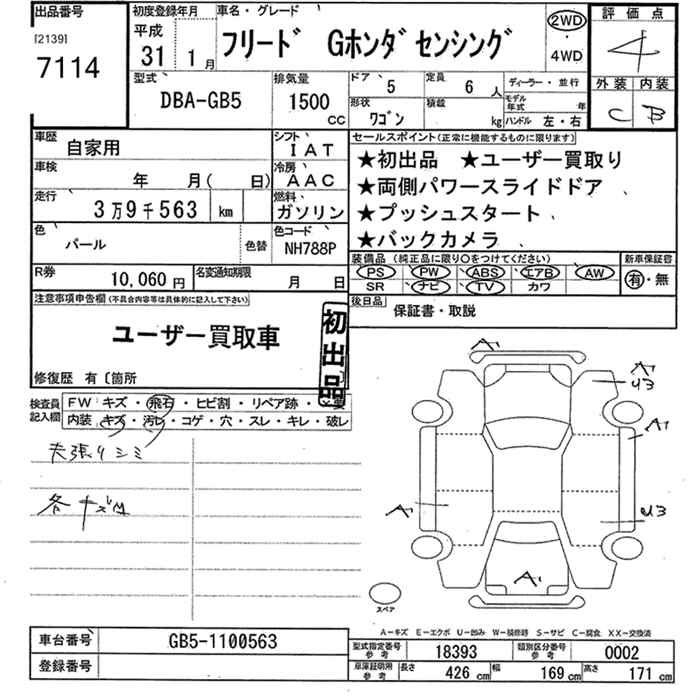 出品番号
[2139]
7114
初度登録年月
平成
31 1月
車名・グレード
フリード Gホンダセンシング
2WD
・
4WD
評価点
4
外装 内装
C B
型式
DBA-GB5
排気量
1500 CC
ドア 5
定員 6 人
ディーラー・並行
形状 ワゴン
積載 kg
モデル年式 年
ハンドル 左・右
車歴 自家用
シフト IAT
車検 年 月( 日)
冷房 AAC
走行 3万9千563 km
燃料 ガソリン
色 パール
色替
色コード NH788P
R券 10,060円
名変通知期限 月 日
セールスポイント(正常に機能するものに限ります)
★初出品 ★ユーザー買取り
★両側パワースライドドア
★プッシュスタート
★バックカメラ
装備品(純正品に限り○をつけてください)
PS PW ABS エアB AW
SR ナビ TV カワ
新車保証書
有・無
後日品 保証書・取説
注意事項申告欄(不具合内容等は具体的に記入して下さい)
ユーザー買取車
初出品
修復歴 有〔箇所
検査員記入欄
FW キズ・飛石・ヒビ割・リペア跡・
内装 キズ・汚レ・コゲ・穴・スレ・キレ・破レ
天張りシミ
各キズ凹
A1
A1
U3
A1
A1
U3
A1
スペア
A-キズ E-エクボ U-凹み W-補修跡 S-サビ C-腐食 XX-交換済
車台番号 GB5-1100563
登録番号
型式指定番号 参考 18393
類別区分番号 参考 0002
車庫証明用 参考 長さ 426 cm 幅 169 cm 高さ 171 cm